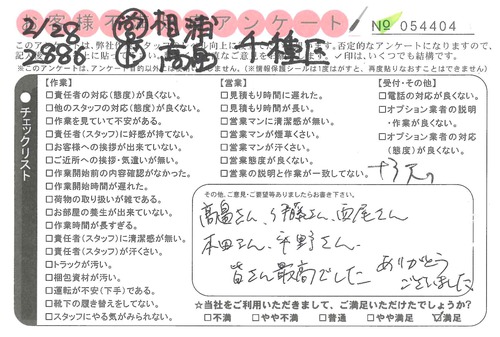 お客様 アンケート
№ 054404
2/28
2886
相浦
高畠
千種区
チェックリスト
【作業】
□責任者の対応(態度)が良くない。
□他のスタッフの対応(態度)が良くない。
□作業を見ていて不安がある。
□責任者(スタッフ)に好感が持てない。
□お客様への挨拶が出来ていない。
□ご近所への挨拶・気遣いが無い。
□作業開始前の内容確認がなかった。
□作業開始時間が遅れた。
□荷物の取り扱いが雑である。
□お部屋の養生が出来ていない。
□作業時間が長すぎる。
□責任者(スタッフ)に清潔感が無い。
□責任者(スタッフ)が汗くさい。
□トラックが汚い。
□梱包資材が汚い。
□運転が不安(下手)である。
□靴下の履き替えをしてない。
□スタッフにやる気がみられない。
【営業】
□見積もり時間に遅れた。
□見積もり時間が長い。
□営業マンに清潔感が無い。
□営業マンが煙草くさい。
□営業マンが汗くさい。
□営業態度が良くない。
□営業の説明と作業が一致してない。
【受付・その他】
□電話の対応が良くない。
□オプション業者の説明・作業が良くない。
□オプション業者の対応(態度)が良くない。
その他、ご意見・ご要望等ありましたらお書き下さい。
高畠さん、伊藤さん、西尾さん
本田さん、平野さん、
皆さん最高でした ありがとう
ございました
☆当社をご利用いただきまして、ご満足いただけたでしょうか?
□不満 □やや不満 □普通 □やや満足 ☑満足